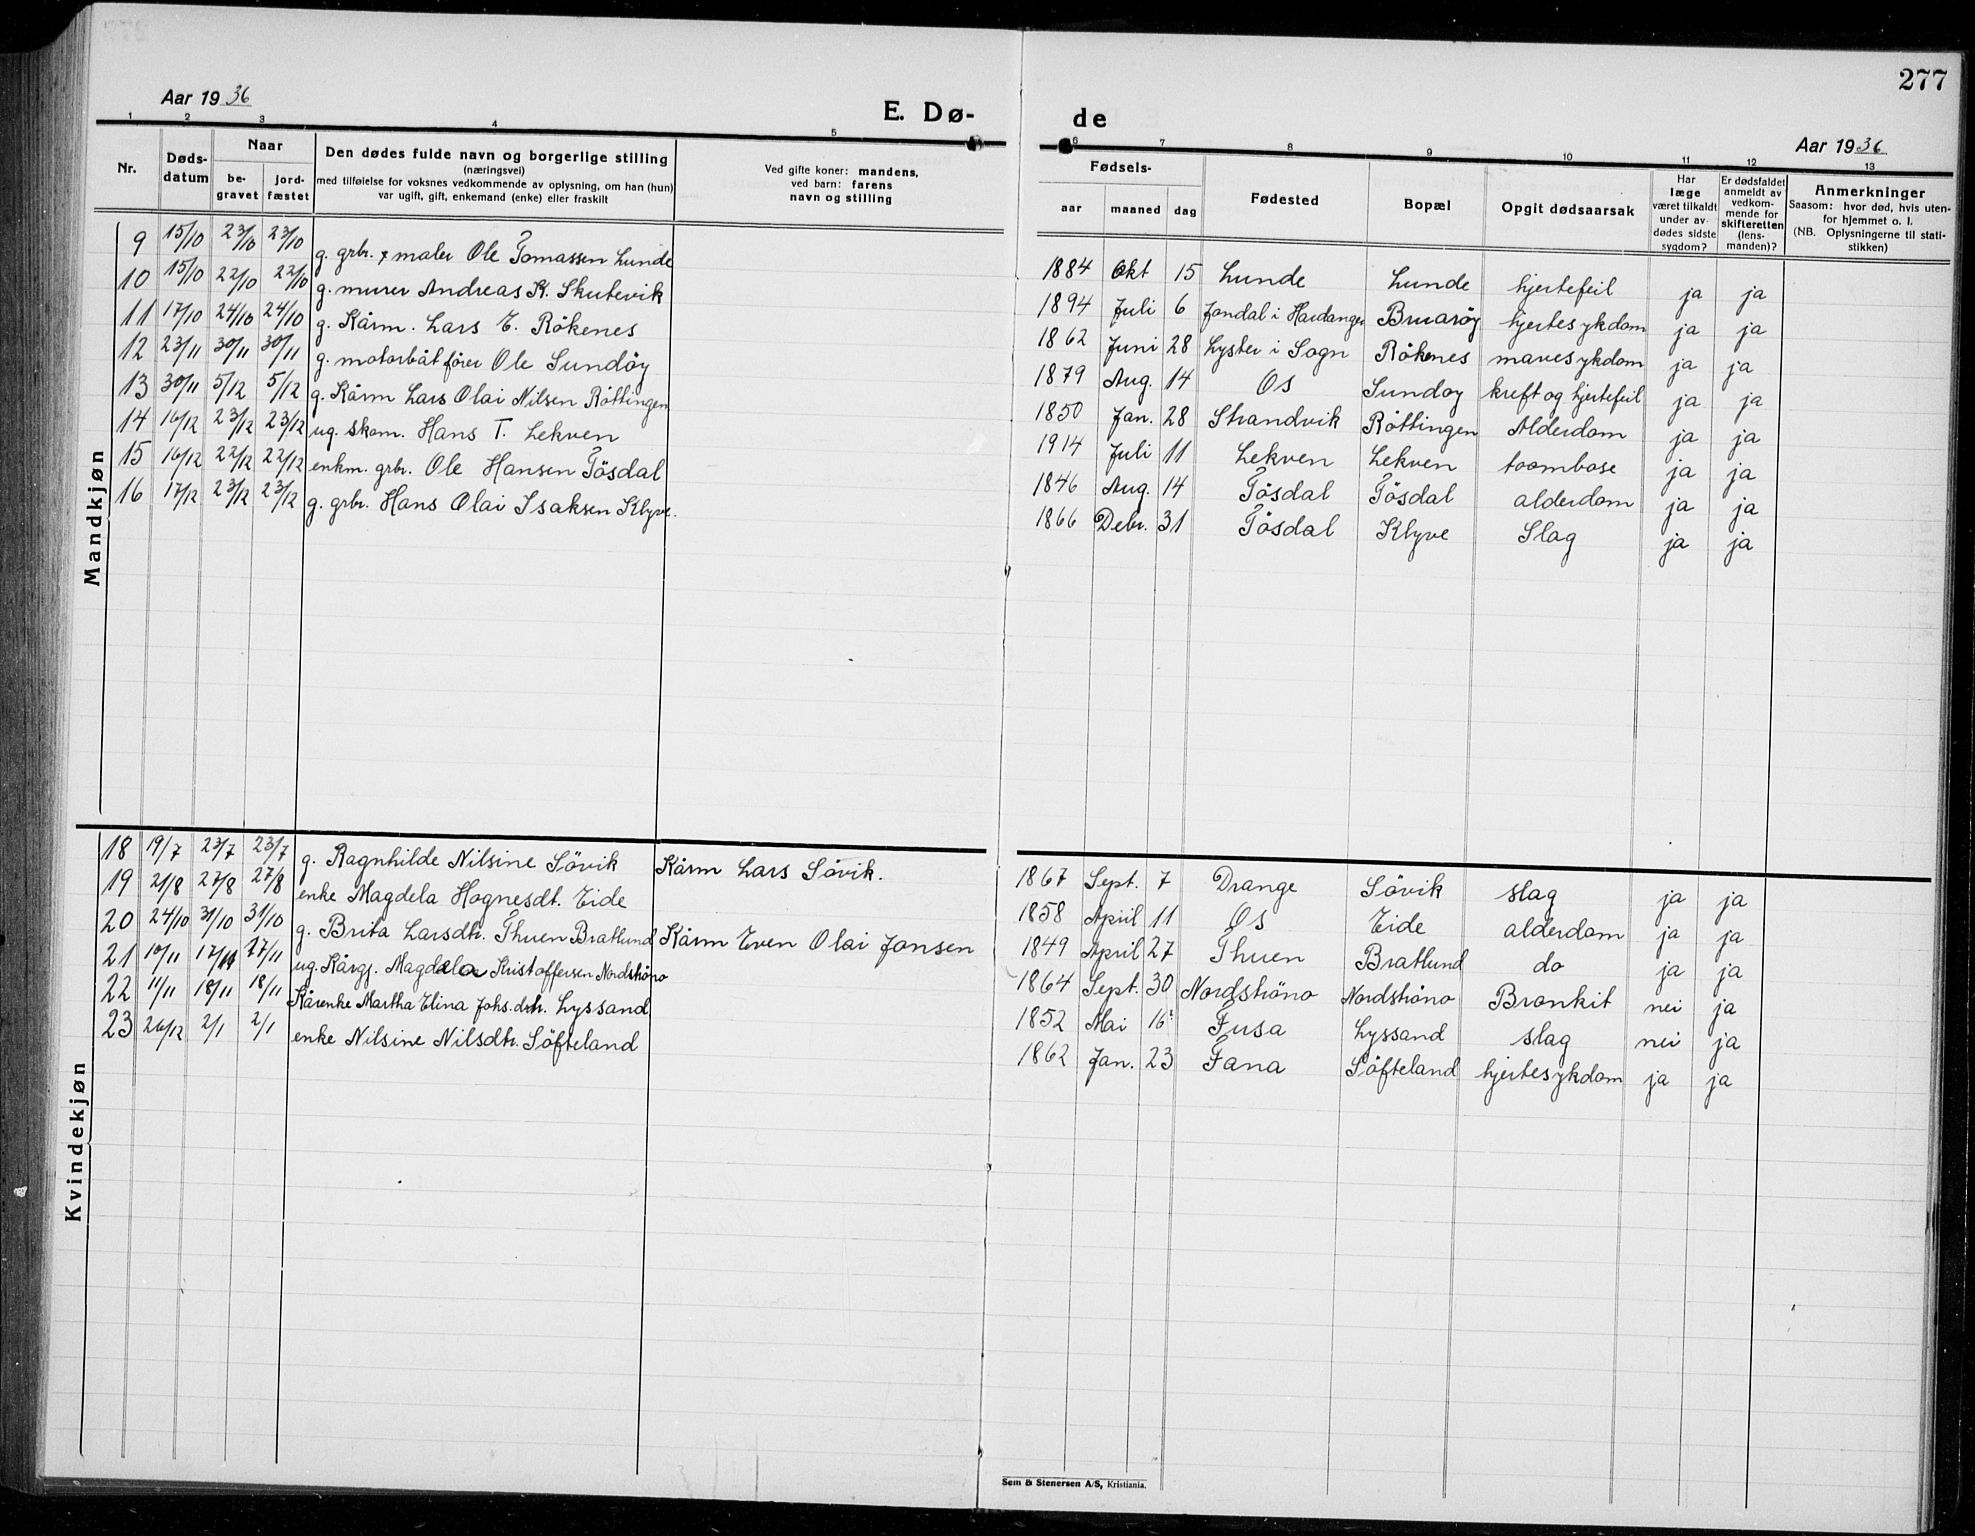 277
Aar 1936
E. Dø-
de
Aar 1936
1 2 3 4 5 6 7 8 9 10 11 12 13
Nr.
Døds-
datum
Naar
be-
gravet
jord-
fæstet
Den dødes fulde navn og borgerlige stilling
(næringsvei)
med tilføielse for voksnes vedkommende av oplysning, om han (hun)
var ugift, gift, enkemand (enke) eller fraskilt
Ved gifte koner: mandens,
ved barn: farens
navn og stilling
Fødsels-
aar
maaned
dag
Fødested
Bopæl
Opgit dødsaarsak
Har
læge
været tilkaldt
under av-
dødes sidste
sygdom?
Er dødsfaldet
anmeldt av
vedkom-
mende for
skifteretten
(lens-
manden)?
Anmerkninger
Saasom: hvor død, hvis uten-
for hjemmet o. l.
(NB. Oplysningerne til stati-
stikken)
Mandkjøn
9 15/10 23/10 23/10 g. grbr. x maler Ole Tomassen Lunde 1884 Okt 15 Lunde Lunde hjertefeil ja ja
10 15/10 22/10 22/10 g. murer Andreas K. Skutevik 1894 Juli 6 Jondal i Hardanger Bruarøy hjertesykdom ja ja
11 17/10 24/10 24/10 g. Kårm. Lars E. Rökenes 1862 Juni 28 Lyster i Sogn Rökenes mavesykdom ja ja
12 23/11 30/11 30/11 g. motorbåtfører Ole Sundöy 1879 Aug. 14 Os Sundoy kreft og hjertefeil ja ja
13 30/11 5/12 5/12 g. Kårm Lars Olai Nilsen Röttingen 1850 Jan. 28 Strandvik Röttingen Alderdom ja ja
14 16/12 23/12 23/12 ug. skom. Hans T. Lekven 1914 Juli 11 Lekven Lekven toombose ja ja
15 16/12 22/12 22/12 enkm. grbr. Ole Hansen Tösdal 1846 Aug. 14 Tösdal Tösdal alderdom ja ja
16 17/12 23/12 23/12 g. grbr. Hans Olai Isaksen Klyve. 1866 Debr. 31 Tösdal Klyve Slag ja ja
Kvindekjøn
18 19/7 23/7 23/7 g. Ragnhilde Nilsine Sövik Kårm Lars Sövik. 1867 Sept. 7 Drange Sövik slag ja ja
19 21/8 27/8 27/8 enke Magdela Hognesdt. Eide 1858 Apriil 11 Os Eide alderdom ja ja
20 24/10 31/10 31/10 g. Brita Larsdtr. Thuen Bratlund Kårm Even Olai Jansen 1849 April 27 Thuen Bratlund do ja ja
21 10/11 17/11 17/11 ug. Kårgj. Magdela Kristoffersen Nordströno 1864 Sept. 30 Nordströno Nordströno Bronkit nei ja
22 11/11 18/11 18/11 Kårenke Martha Elina Johs.dtr. Lyssand 1852 Mai 16 Fusa Lyssand slag nei ja
23 26/12 2/1 2/1 enke Nilsine Nilsdtr. Söfteland 1862 Jan. 23 Fana Söfteland hjertesykdom ja ja
Sem & Stenersen A/S, Kristiania.